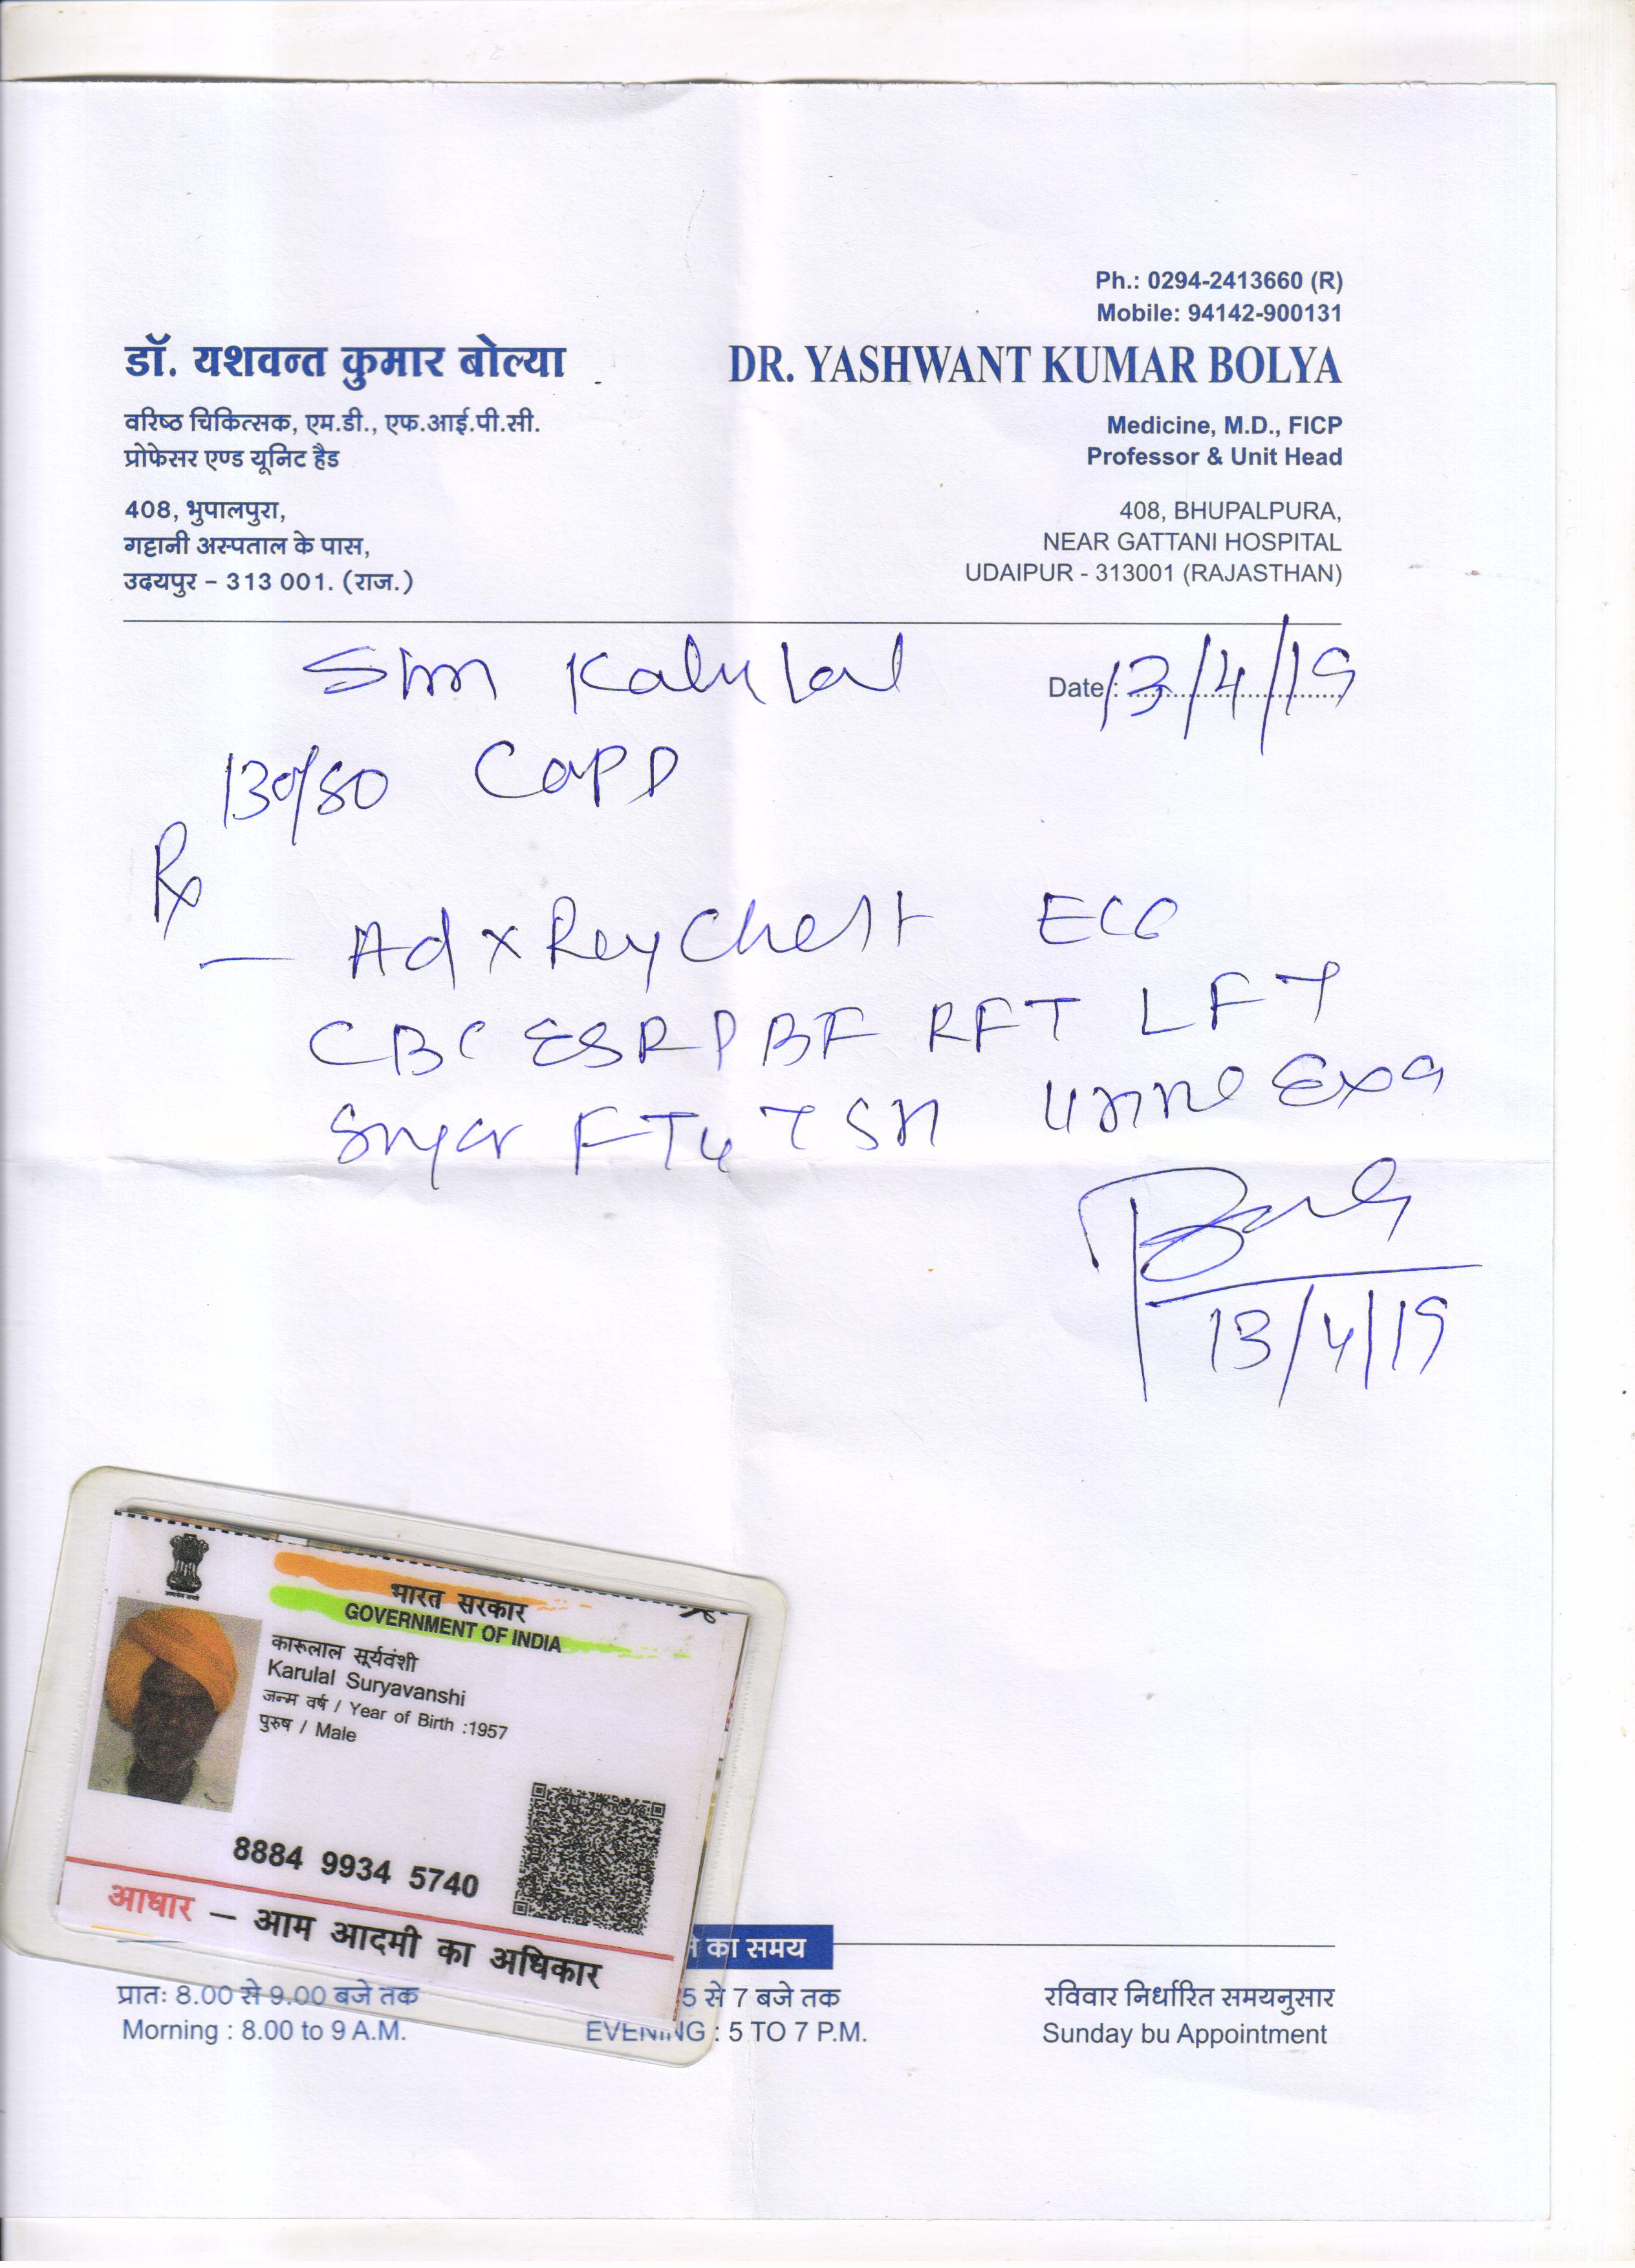 Ph.: 0294-2413660 (R)
Mobile: 94142-900131
डॉ. यशवन्त कुमार बोल्या
वरिष्ठ चिकित्सक, एम.डी., एफ.आई.पी.सी.
प्रोफेसर एण्ड यूनिट हैड
408, भुपालपुरा,
गट्टानी अस्पताल के पास,
उदयपुर - 313 001. (राज.)
DR. YASHWANT KUMAR BOLYA
Medicine, M.D., FICP
Professor & Unit Head
408, BHUPALPURA,
NEAR GATTANI HOSPITAL
UDAIPUR - 313001 (RAJASTHAN)
Kalulal
Date : 13/4/19
130/80 COPD
Rx
Ad x Ray Chest ECG
CBC ESR PBF RFT LFT
Sugar FT4 TSH Urine Exa
13/4/19
भारत सरकार
GOVERNMENT OF INDIA
कारूलाल सूर्यवंशी
Karulal Suryavanshi
जन्म वर्ष / Year of Birth :1957
पुरुष / Male
8884 9934 5740
आधार – आम आदमी का अधिकार
का समय
प्रातः 8.00 से 9.00 बजे तक
Morning : 8.00 to 9 A.M.
5 से 7 बजे तक
EVENING : 5 TO 7 P.M.
रविवार निर्धारित समयनुसार
Sunday bu Appointment